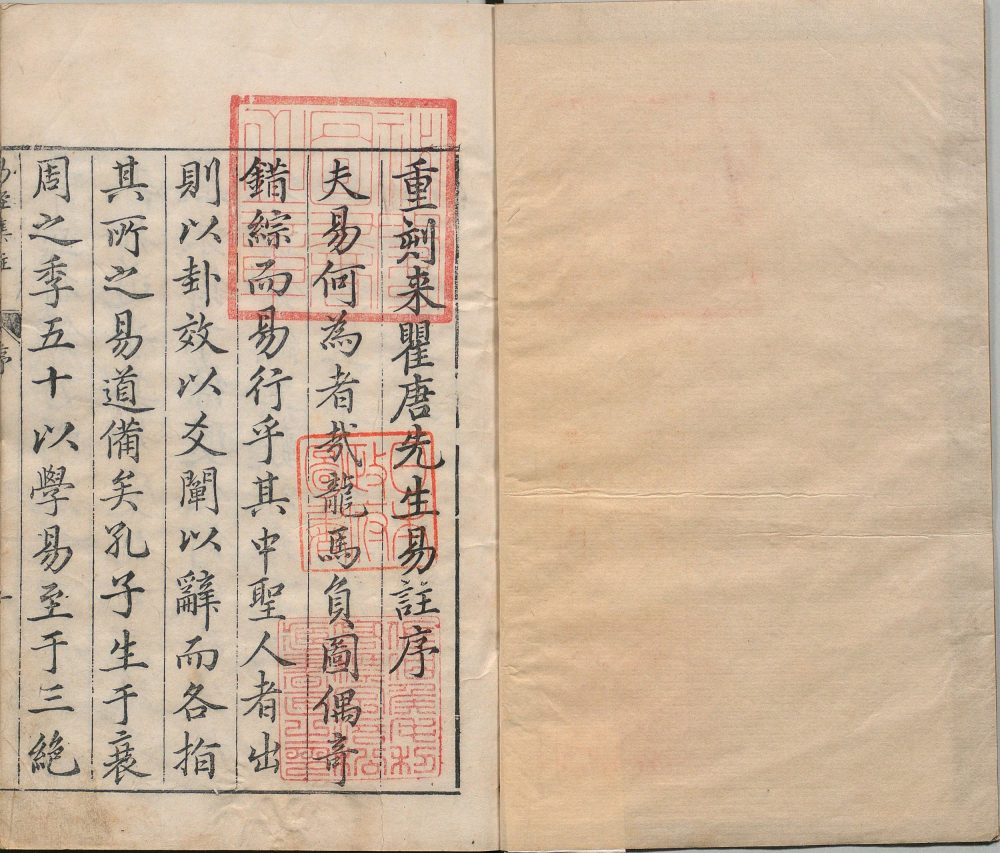 重刻来瞿唐先生易註序
夫易何為者哉龍馬負圖偶奇
錯綜而易行乎其中聖人者出
則以卦效以爻闡以辭而各指
其所之易道備矣孔子生于衰
周之季五十以學易至于三絶
易經集註
序
一
日本
政府
圖書